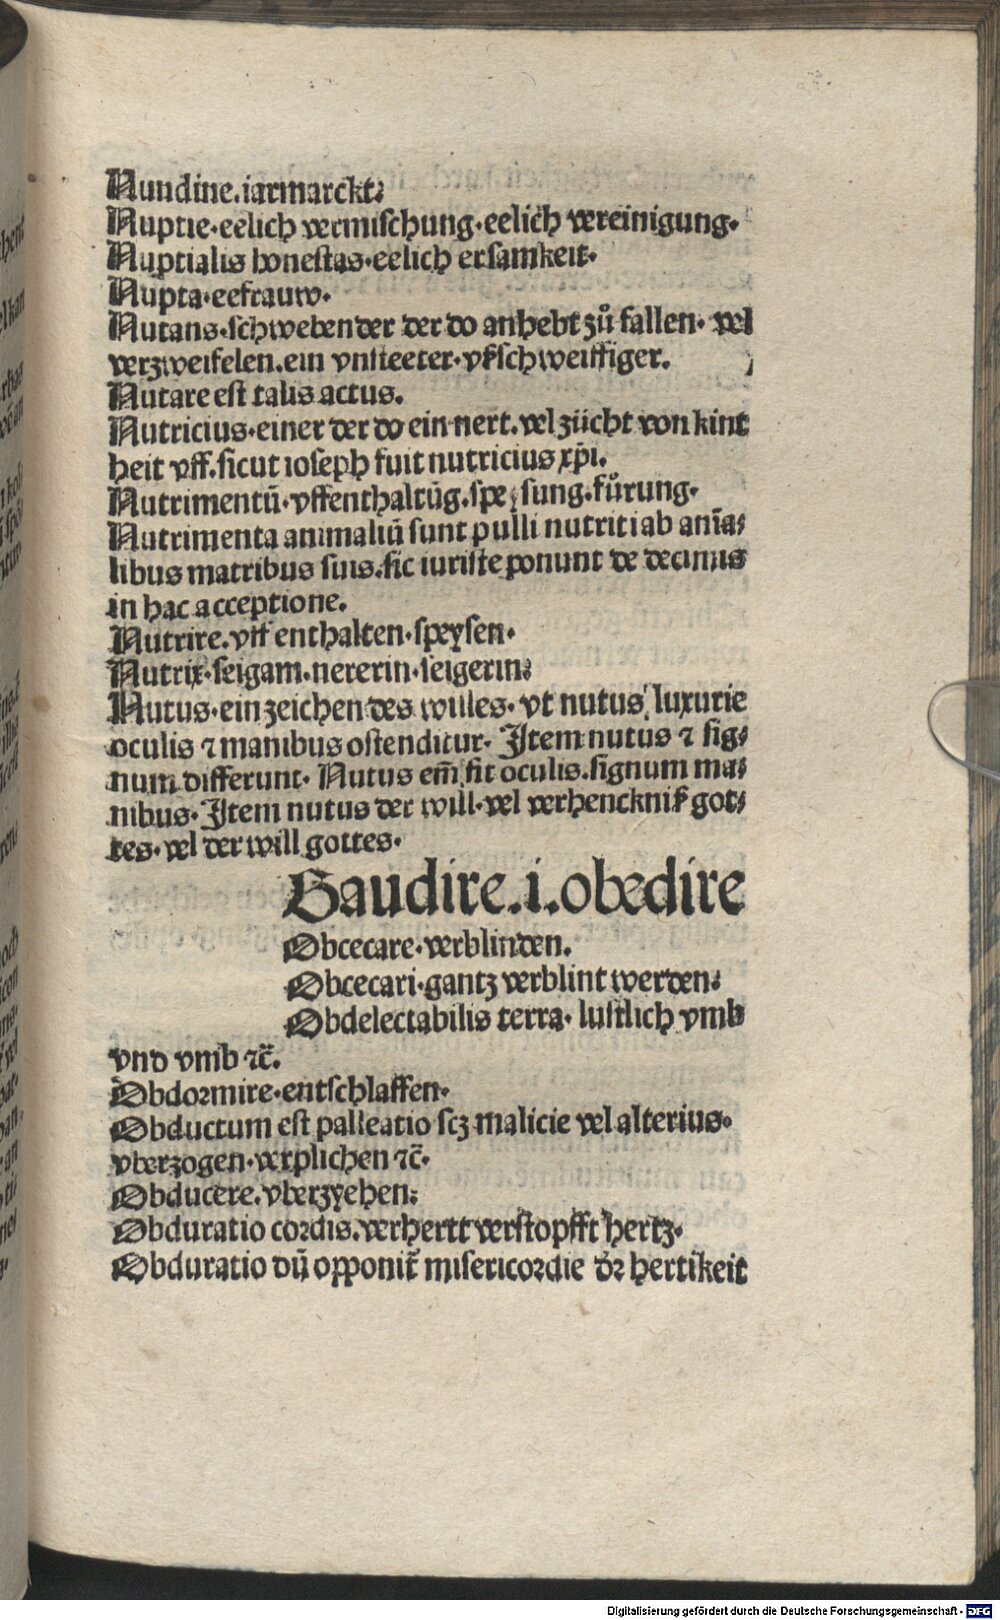 Nundine.iarmarckt.
Nuptie.eelich vermischung.eelich vereinigung.
Nuptialis honestas.eelich ersamkeit.
Nupta.eefrauw.
Nutans.schwebender der do anhebt zů fallen. vel
verzweifelen.ein vnsteeter.vßschweiffiger.
Nutare est talis actus.
Nutricius.einer der do ein nert.vel zücht von kint
heit vff.sicut ioseph fuit nutricius xp̄i.
Nutrimentū.vffenthaltūg.speysung.fůrung.
Nutrimenta animaliū sunt pulli nutriti ab anīa⸗
libus matribus suis.sic iuriste ponunt de decimis
in hac acceptione.
Nutrire.vff enthalten.speysen.
Nutrix.seigam.nererin.seigerin.
Nutus.ein zeichen des willes. vt nutus luxurie
oculis ⁊ manibus ostenditur. Item nutus ⁊ sig⸗
num differunt. Nutus em̄ fit oculis.signum ma⸗
nibus. Item nutus der will.vel verhenckniß got⸗
tes.vel der will gottes.
Baudire.i.obedire
Obcecare.verblinden.
Obcecari.gantz verblint werden.
Obdelectabilis terra. lustlich vmb
vnd vmb ⁊c̄.
Obdormire.entschlaffen.
Obductum est palleatio scȝ malicie vel alterius.
vberzogen.verplichen ⁊c̄.
Obducere.vberzyehen.
Obduratio cordis.verhertt verstopfft hertz.
Obduratio dū opponit᷑ misericordie d᷑ hertikeit
Digitalisierung gefördert durch die Deutsche Forschungsgemeinschaft - DFG